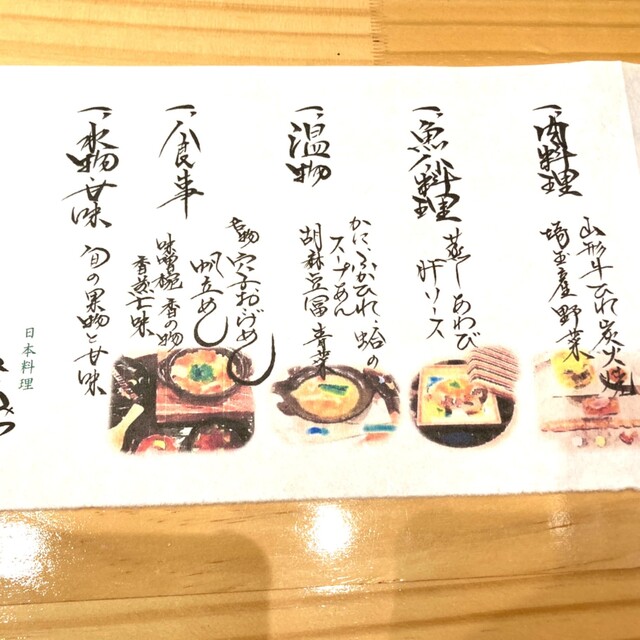 一、肉料理
山形牛ひれ炭火
埼玉産野菜
一、魚料理
蒸しあわび
肝ソース
一、温物
かに、ふかひれ、蛤の
スープあん
胡麻豆冨 青菜
一、食事
名物 穴子おこげめし
帆立めし
味噌椀 香の物
香煎七味
一、水物・甘味
旬の果物と甘味
日本料理